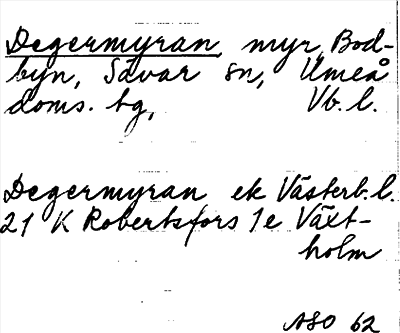 Degermyran, myr, Bod-
byn, Sävar sn, Umeå
doms. tg, Vb. l.
Degermyran ek Västerb. l.
21 K Robertsfors 1e Växt-
holm
ASO 62